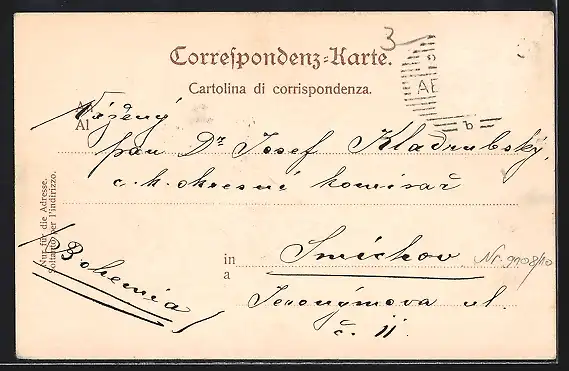 3
Correspondenz-Karte.
Cartolina di corrispondenza.
Al
Vážený
pan Dr Josef Kladrubský,
c. k. okresní komisař
Nur für die Adresse.
Soltanto per l'indirizzo.
in
a
Smíchov
Nr. 9908/10
Bohemia
Jeronýmova ul.
č. 11
b